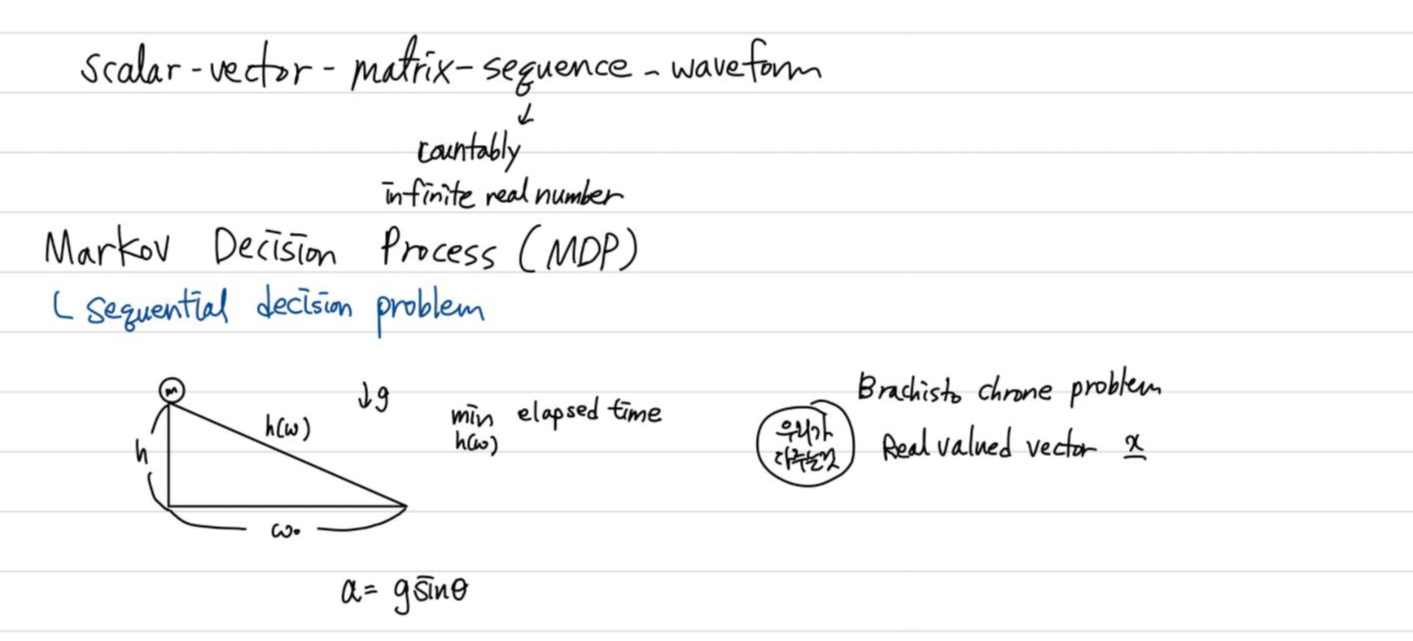 scalar-vector-matrix-sequence-waveform
↓
countably
infinite real number
Markov Decision Process (MDP)
└ sequential decision problem
m
h(w)
h
w₀
↓g
min elapsed time
h(w)
a = g sinθ
Brachisto chrone problem
우리가
다루는것
Real valued vector x